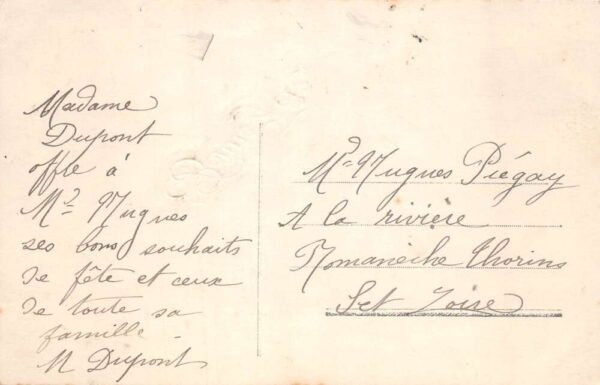 Madame
Dupont
offre à
Mr Hugues
ses bons souhaits
de fête et ceux
de toute sa
famille
M Dupont
Mr Hugues Piégay
A la rivière
Romanèche Thorins
Set Loire